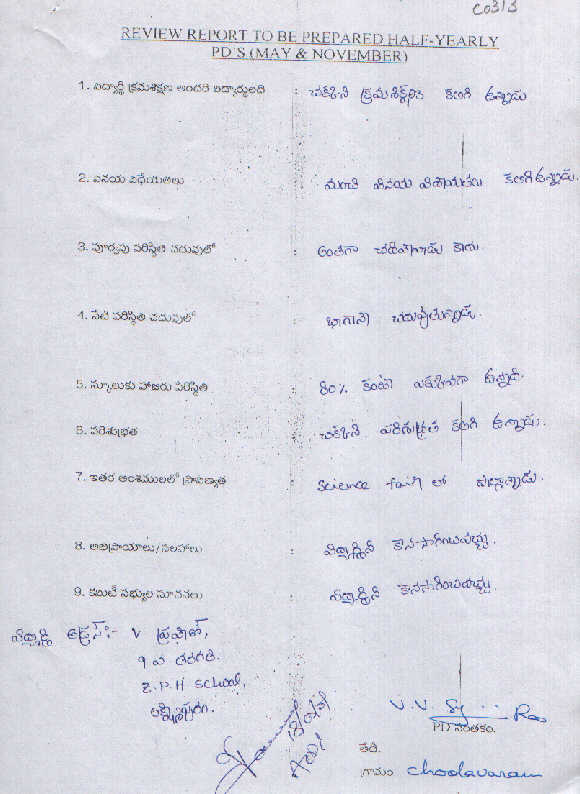 C0313
REVIEW REPORT TO BE PREPARED HALF-YEARLY
PD'S (MAY & NOVEMBER)
1. విద్యార్థి క్రమశిక్షణ అందరి విద్యార్థులది : చక్కని క్రమశిక్షణ కలిగి ఉన్నాడు
2. వినయ విధేయతలు : మంచి వినయ విధేయతలు కలిగి ఉన్నాడు.
3. పూర్వపు పరిస్థితి చదువులో : అంతగా చదివేవాడు కాదు.
4. నేటి పరిస్థితి చదువులో : బాగానే చదువుతున్నాడు.
5. స్కూలుకు హాజరు పరిస్థితి : 80% కంటే ఎక్కువగా ఉన్నాది.
6. పరిశుభ్రత : చక్కని పరిశుభ్రత కలిగి ఉన్నాడు.
7. ఇతర అంశములలో ప్రావిణ్యత : Science fair లో
8. అభిప్రాయాలు/సలహాలు : విద్యార్థిని కొనసాగించవచ్చు.
9. కమిటీ సభ్యుల సూచనలు : విద్యార్థిని కొనసాగించవచ్చు.
విద్యార్థి అడ్రస్:- V ప్రవీణ్,
9 వ తరగతి.
Z.P.H School,
లక్ష్మీపురం.
V.V. Rao
PD సంతకం.
తేది.
గ్రామం choolavaram